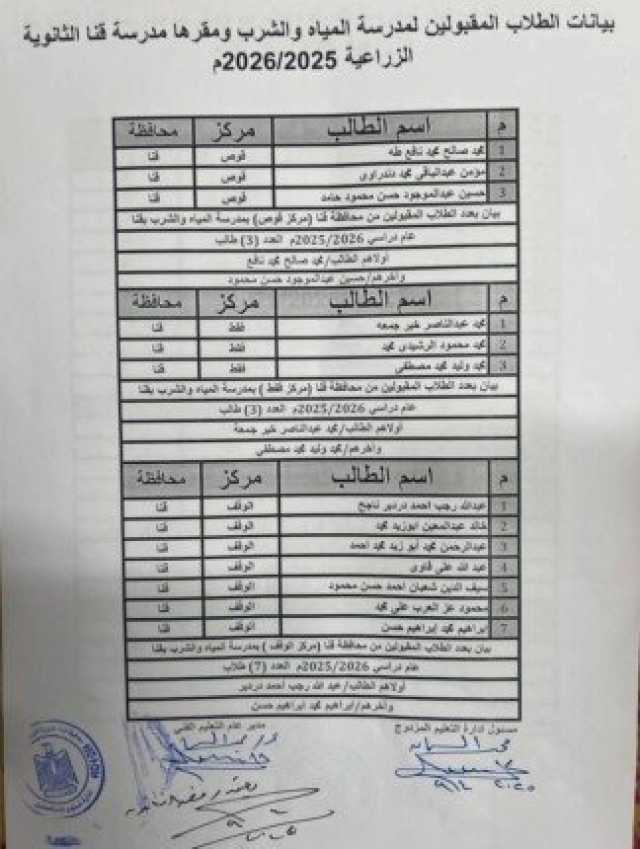 بيانات الطلاب المقبولين لمدرسة المياه والشرب ومقرها مدرسة قنا الثانوية
الزراعية 2026/2025م
م اسم الطالب مركز محافظة
1 محمد صالح محمد نافع طه قوص قنا
2 مؤمن عبدالباقي محمد دندراوي قوص قنا
3 حسين عبدالموجود حسن محمود حامد قوص قنا
بيان بعدد الطلاب المقبولين من محافظة قنا (مركز قوص) بمدرسة المياه والشرب بقنا
عام دراسي 2025/2026م العدد (3) طالب
أولاهم الطالب/محمد صالح محمد نافع
وأخرهم/حسين عبدالموجود حسن محمود
م اسم الطالب مركز محافظة
1 محمد عبدالناصر خير جمعه فقط قنا
2 محمد محمود الرشيدى محمد فقط قنا
3 محمد وليد محمد مصطفى فقط قنا
بيان بعدد الطلاب المقبولين من محافظة قنا (مركز فقط ) بمدرسة المياه والشرب بقنا
عام دراسي 2025/2026م العدد (3) طالب
أولاهم الطالب/محمد عبدالناصر خير جمعة
وأخرهم/محمد وليد محمد مصطفى
م اسم الطالب مركز محافظة
1 عبدالله رجب احمد دردير ناجح الوقف قنا
2 خالد عبدالمعين ابوزيد محمد الوقف قنا
3 عبدالرحمن محمد أبو زيد محمد احمد الوقف قنا
4 عبد الله علي قناوى الوقف قنا
5 سيف الدين شعبان احمد حسن محمود الوقف قنا
6 محمود عز العرب علي محمد الوقف قنا
7 إبراهيم محمد إبراهيم حسن الوقف قنا
بيان بعدد الطلاب المقبولين من محافظة قنا (مركز الوقف ) بمدرسة المياه والشرب بقنا
عام دراسي 2025/2026م العدد (7) طلاب
أولاهم الطالب/عبد الله رجب احمد دردير
وأخرهم/إبراهيم محمد إبراهيم حسن
مسئول ادارة التعليم المزدوج
مدير عام التعليم الفني